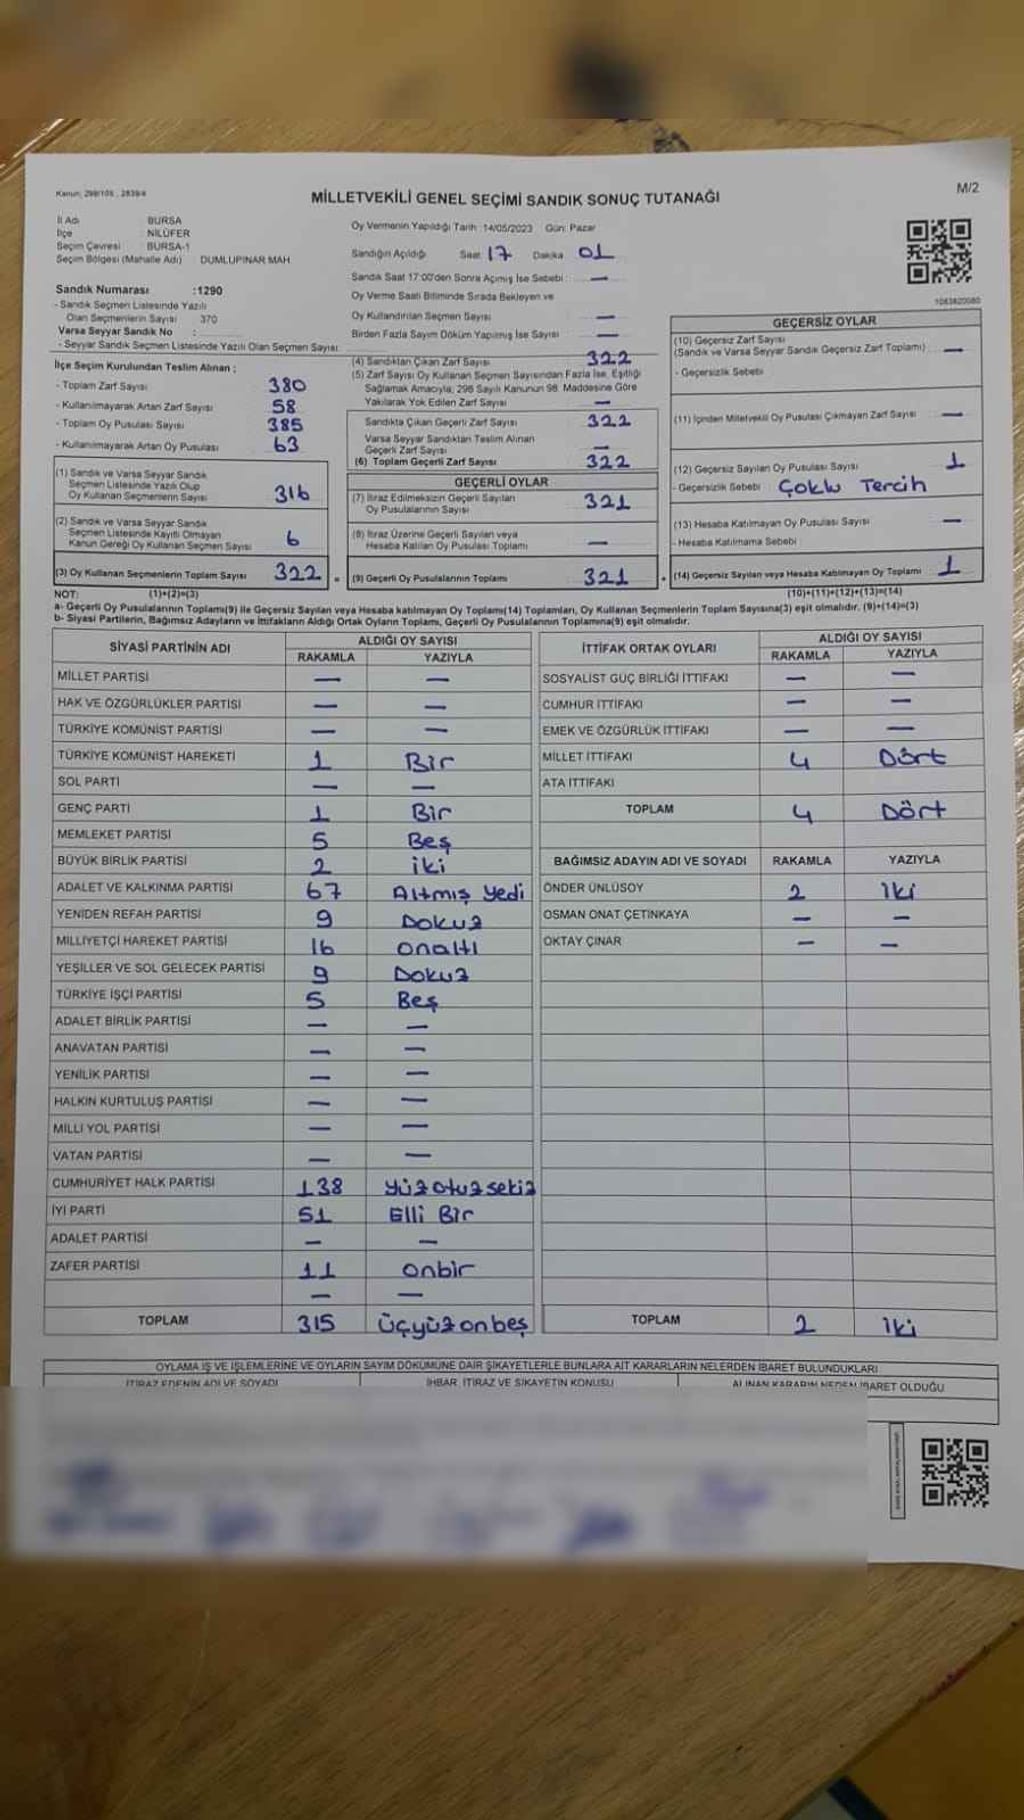 Kanun: 298/105 , 2839/4
MİLLETVEKİLİ GENEL SEÇİMİ SANDIK SONUÇ TUTANAĞI
M/2
İl Adı : BURSA
İlçe : NİLÜFER
Seçim Çevresi : BURSA-1
Seçim Bölgesi (Mahalle Adı) DUMLUPINAR MAH
Sandık Numarası :1290
- Sandık Seçmen Listesinde Yazılı
Olan Seçmenlerin Sayısı 370
Varsa Seyyar Sandık No :
- Seyyar Sandık Seçmen Listesinde Yazılı Olan Seçmen Sayısı:
İlçe Seçim Kurulundan Teslim Alınan ;
- Toplam Zarf Sayısı 380
- Kullanılmayarak Artan Zarf Sayısı 58
- Toplam Oy Pusulası Sayısı 385
- Kullanılmayarak Artan Oy Pusulası 63
(1) Sandık ve Varsa Seyyar Sandık
Seçmen Listesinde Yazılı Olup
Oy Kullanan Seçmenlerin Sayısı 316
(2) Sandık ve Varsa Seyyar Sandık
Seçmen Listesinde Kayıtlı Olmayan
Kanun Gereği Oy Kullanan Seçmen Sayısı 6
(3) Oy Kullanan Seçmenlerin Toplam Sayısı 322
Oy Vermenin Yapıldığı Tarih: 14/05/2023 Gün: Pazar
Sandığın Açıldığı Saat 17 Dakika 01
Sandık Saat 17:00'den Sonra Açılmış İse Sebebi : —
Oy Verme Saati Bitiminde Sırada Bekleyen ve
Oy Kullandırılan Seçmen Sayısı —
Birden Fazla Sayım Döküm Yapılmış İse Sayısı —
(4) Sandıktan Çıkan Zarf Sayısı 322
(5) Zarf Sayısı Oy Kullanan Seçmen Sayısından Fazla İse, Eşitliği
Sağlamak Amacıyla, 298 Sayılı Kanunun 98. Maddesine Göre
Yakılarak Yok Edilen Zarf Sayısı —
Sandıkta Çıkan Geçerli Zarf Sayısı 322
Varsa Seyyar Sandıktan Teslim Alınan
Geçerli Zarf Sayısı —
(6) Toplam Geçerli Zarf Sayısı 322
GEÇERLİ OYLAR
(7) İtiraz Edilmeksizin Geçerli Sayılan
Oy Pusulalarının Sayısı 321
(8) İtiraz Üzerine Geçerli Sayılan veya
Hesaba Katılan Oy Pusulası Toplamı —
= (9) Geçerli Oy Pusulalarının Toplamı 321
1083820080
GEÇERSİZ OYLAR
(10) Geçersiz Zarf Sayısı
(Sandık ve Varsa Seyyar Sandık Geçersiz Zarf Toplamı) —
- Geçersizlik Sebebi
(11) İçinden Milletvekili Oy Pusulası Çıkmayan Zarf Sayısı —
(12) Geçersiz Sayılan Oy Pusulası Sayısı 1
- Geçersizlik Sebebi Çoklu Tercih
(13) Hesaba Katılmayan Oy Pusulası Sayısı —
- Hesaba Katılmama Sebebi :
+ (14) Geçersiz Sayılan veya Hesaba Katılmayan Oy Toplamı 1
NOT: (1)+(2)=(3) (10)+(11)+(12)+(13)=(14)
a- Geçerli Oy Pusulalarının Toplamı(9) ile Geçersiz Sayılan veya Hesaba katılmayan Oy Toplamı(14) Toplamları, Oy Kullanan Seçmenlerin Toplam Sayısına(3) eşit olmalıdır. (9)+(14)=(3)
b- Siyasi Partilerin, Bağımsız Adayların ve İttifakların Aldığı Ortak Oyların Toplamı, Geçerli Oy Pusulalarının Toplamına(9) eşit olmalıdır.
SİYASİ PARTİNİN ADI ALDIĞI OY SAYISI
RAKAMLA YAZIYLA
MİLLET PARTİSİ — —
HAK VE ÖZGÜRLÜKLER PARTİSİ — —
TÜRKİYE KOMÜNİST PARTİSİ — —
TÜRKİYE KOMÜNİST HAREKETİ 1 Bir
SOL PARTİ — —
GENÇ PARTİ 1 Bir
MEMLEKET PARTİSİ 5 Beş
BÜYÜK BİRLİK PARTİSİ 2 iki
ADALET VE KALKINMA PARTİSİ 67 Altmış yedi
YENİDEN REFAH PARTİSİ 9 Dokuz
MİLLİYETÇİ HAREKET PARTİSİ 16 onaltı
YEŞİLLER VE SOL GELECEK PARTİSİ 9 Dokuz
TÜRKİYE İŞÇİ PARTİSİ 5 Beş
ADALET BİRLİK PARTİSİ — —
ANAVATAN PARTİSİ — —
YENİLİK PARTİSİ — —
HALKIN KURTULUŞ PARTİSİ — —
MİLLİ YOL PARTİSİ — —
VATAN PARTİSİ — —
CUMHURİYET HALK PARTİSİ 138 yüzotuzsekiz
İYİ PARTİ 51 Elli Bir
ADALET PARTİSİ — —
ZAFER PARTİSİ 11 onbir
— —
TOPLAM 315 üçyüzonbeş
İTTİFAK ORTAK OYLARI ALDIĞI OY SAYISI
RAKAMLA YAZIYLA
SOSYALİST GÜÇ BİRLİĞİ İTTİFAKI — —
CUMHUR İTTİFAKI — —
EMEK VE ÖZGÜRLÜK İTTİFAKI — —
MİLLET İTTİFAKI 4 Dört
ATA İTTİFAKI
TOPLAM 4 Dört
BAĞIMSIZ ADAYIN ADI VE SOYADI RAKAMLA YAZIYLA
ÖNDER ÜNLÜSOY 2 iki
OSMAN ONAT ÇETİNKAYA — —
OKTAY ÇINAR — —
TOPLAM 2 iki
OYLAMA İŞ VE İŞLEMLERİNE VE OYLARIN SAYIM DÖKÜMÜNE DAİR ŞİKAYETLERLE BUNLARA AİT KARARLARIN NELERDEN İBARET BULUNDUKLARI
İTİRAZ EDENİN ADI VE SOYADI İHBAR, İTİRAZ VE ŞİKAYETİN KONUSU ALINAN KARARIN NEDEN İBARET OLDUĞU